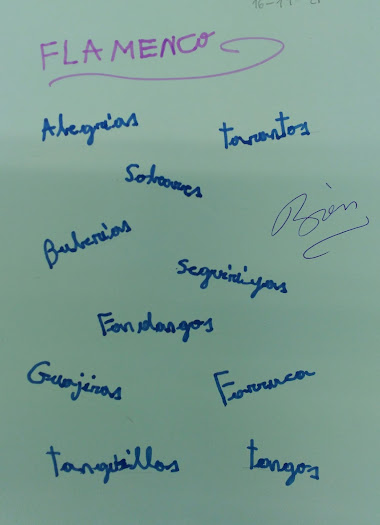 FLAMENCO
Alegrias
tarantos
Soleares
Bulerias
Bien
Seguiriyas
Fandangos
Guajiras
Farruca
tanguillos
tangos